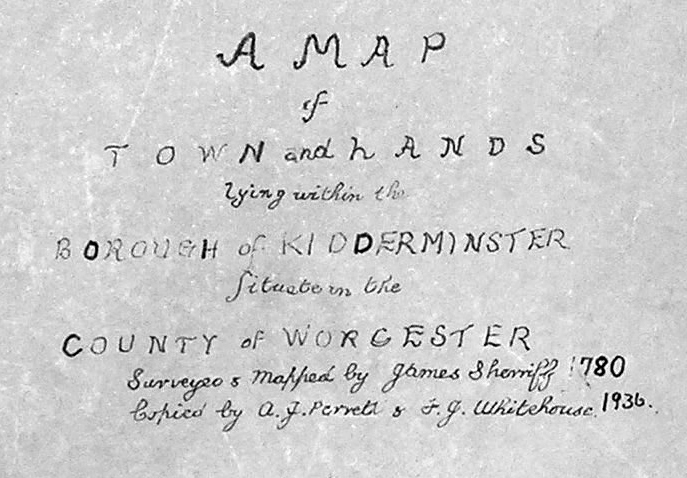 A MAP
of
TOWN and LANDS
lying within the
BOROUGH of KIDDERMINSTER
Situate in the
COUNTY of WORCESTER
Surveyed & Mapped by James Sherriff 1780
Copied by A.J. Perrett & F.J. Whitehouse. 1936.